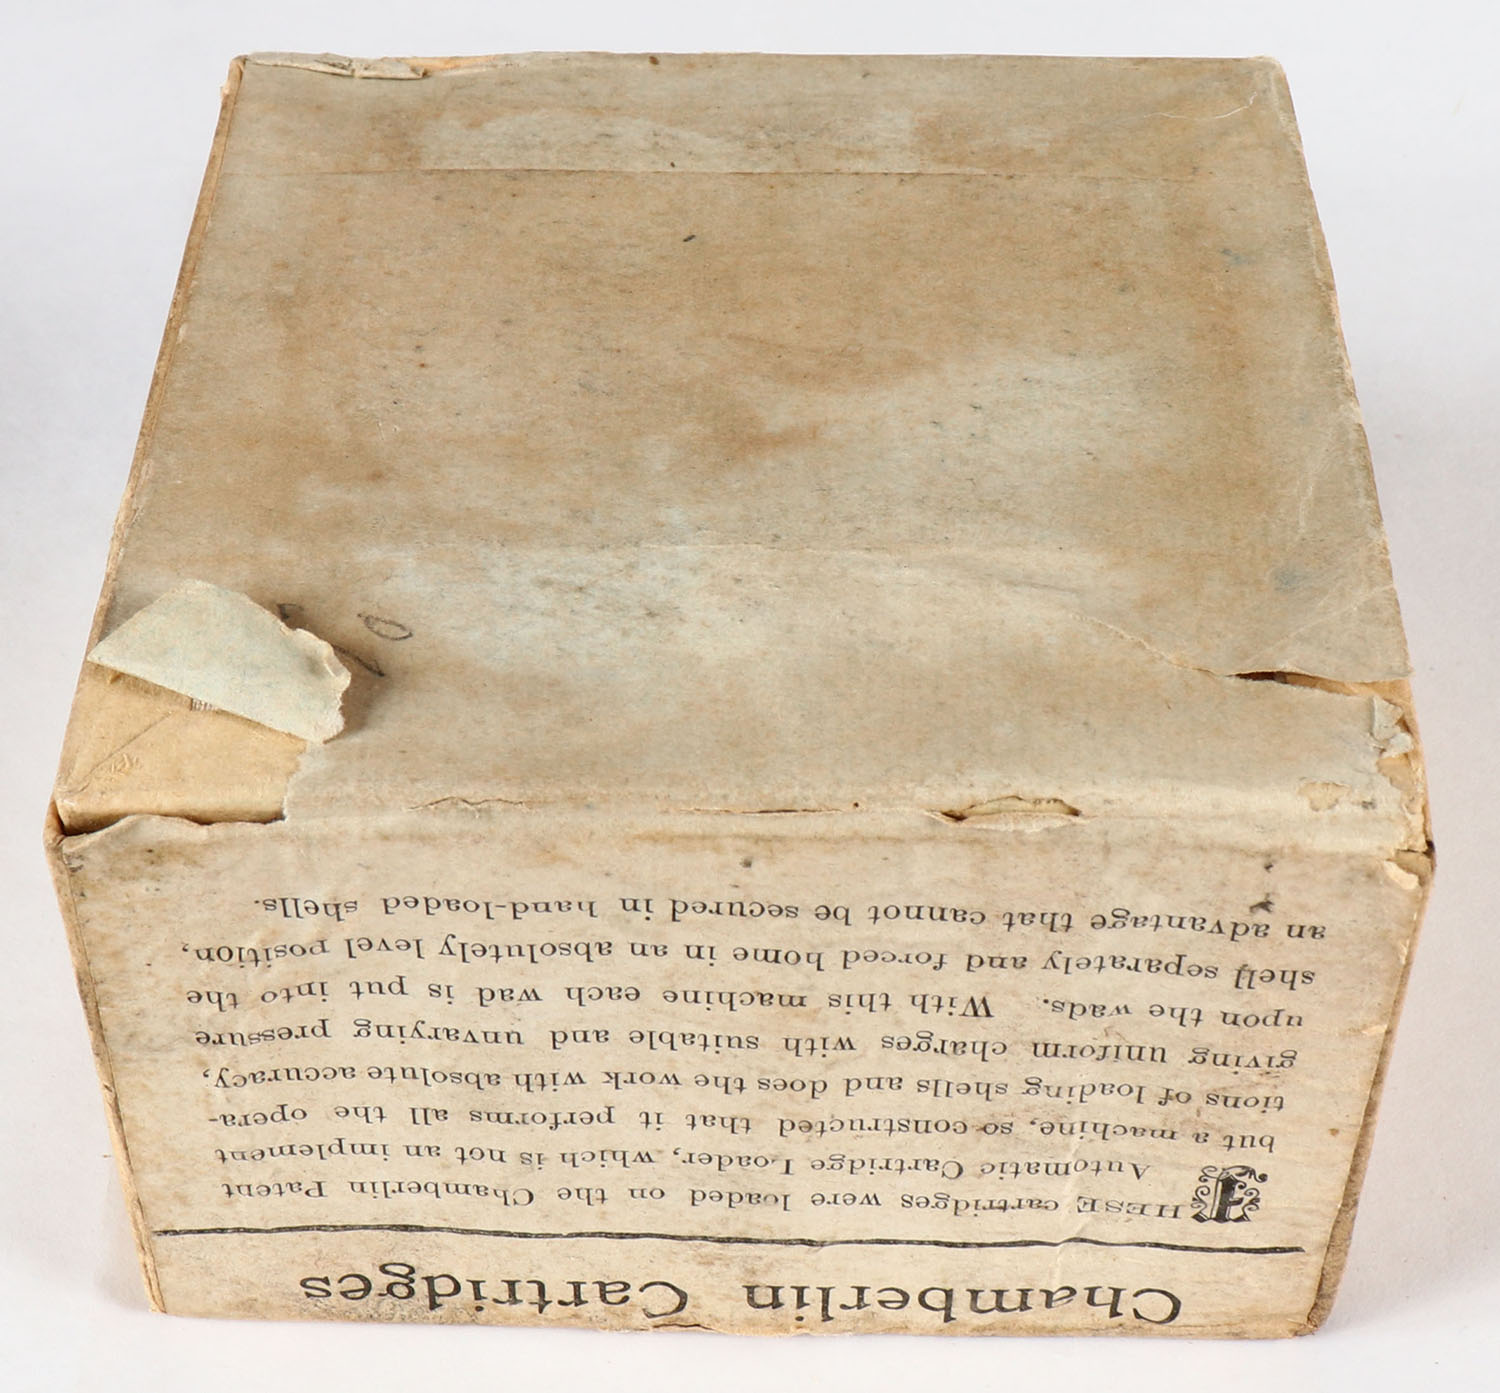 Chamberlin Cartridges
THESE cartridges were loaded on the Chamberlin Patent
Automatic Cartridge Loader, which is not an implement
but a machine, so constructed that it performs all the opera-
tions of loading shells and does the work with absolute accuracy,
giving uniform charges with suitable and unvarying pressure
upon the wads. With this machine each wad is put into the
shell separately and forced home in an absolutely level position,
an advantage that cannot be secured in hand-loaded shells.